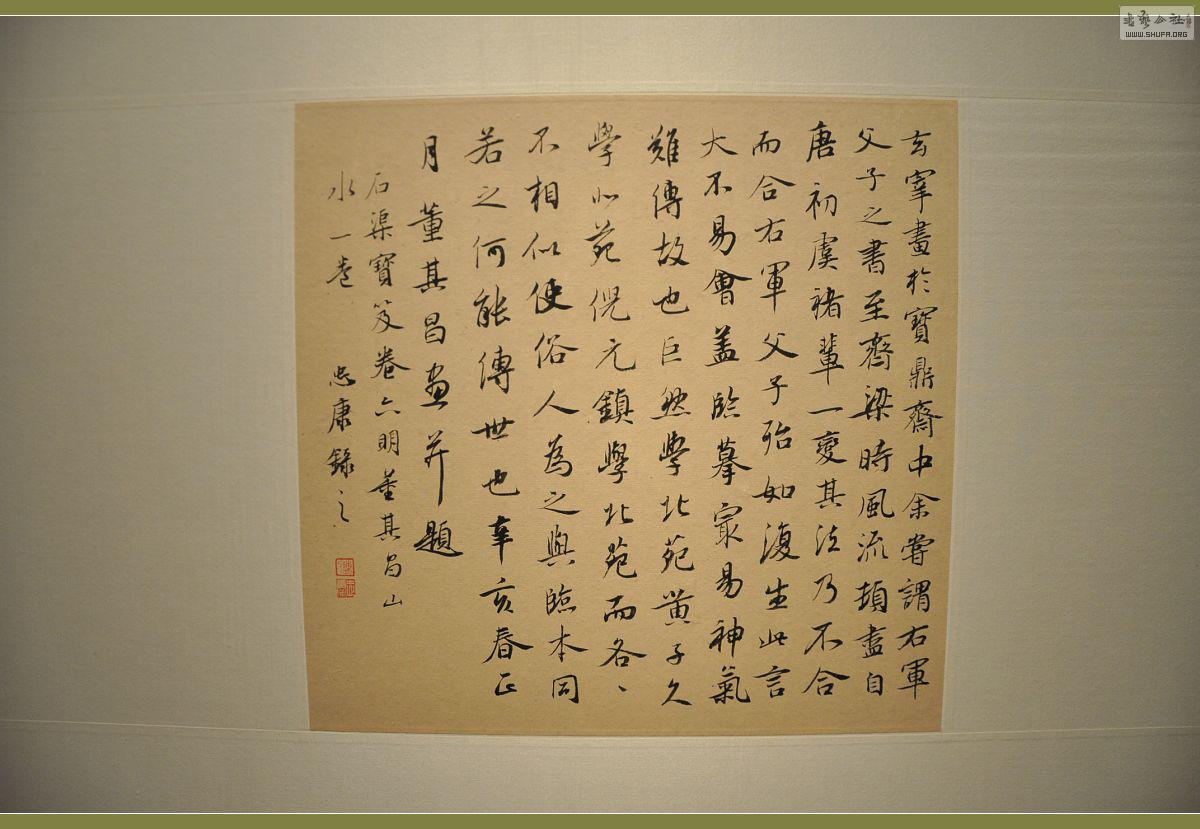 玄宰畫於寶鼎齋中余嘗謂右軍
父子之書至齊梁時風流頓盡自
唐初虞褚輩一變其法乃不合
而合右軍父子殆如復生此言
大不易會蓋臨摹最易神氣
難傳故也巨然學北苑黃子久
學北苑倪元鎮學北苑而各、
不相似使俗人為之與臨本同
若之何能傳世也辛亥春正
月董其昌畫并題
石渠寶笈卷六明董其昌山
水一卷 忠康錄之
WWW.SHUFA.ORG